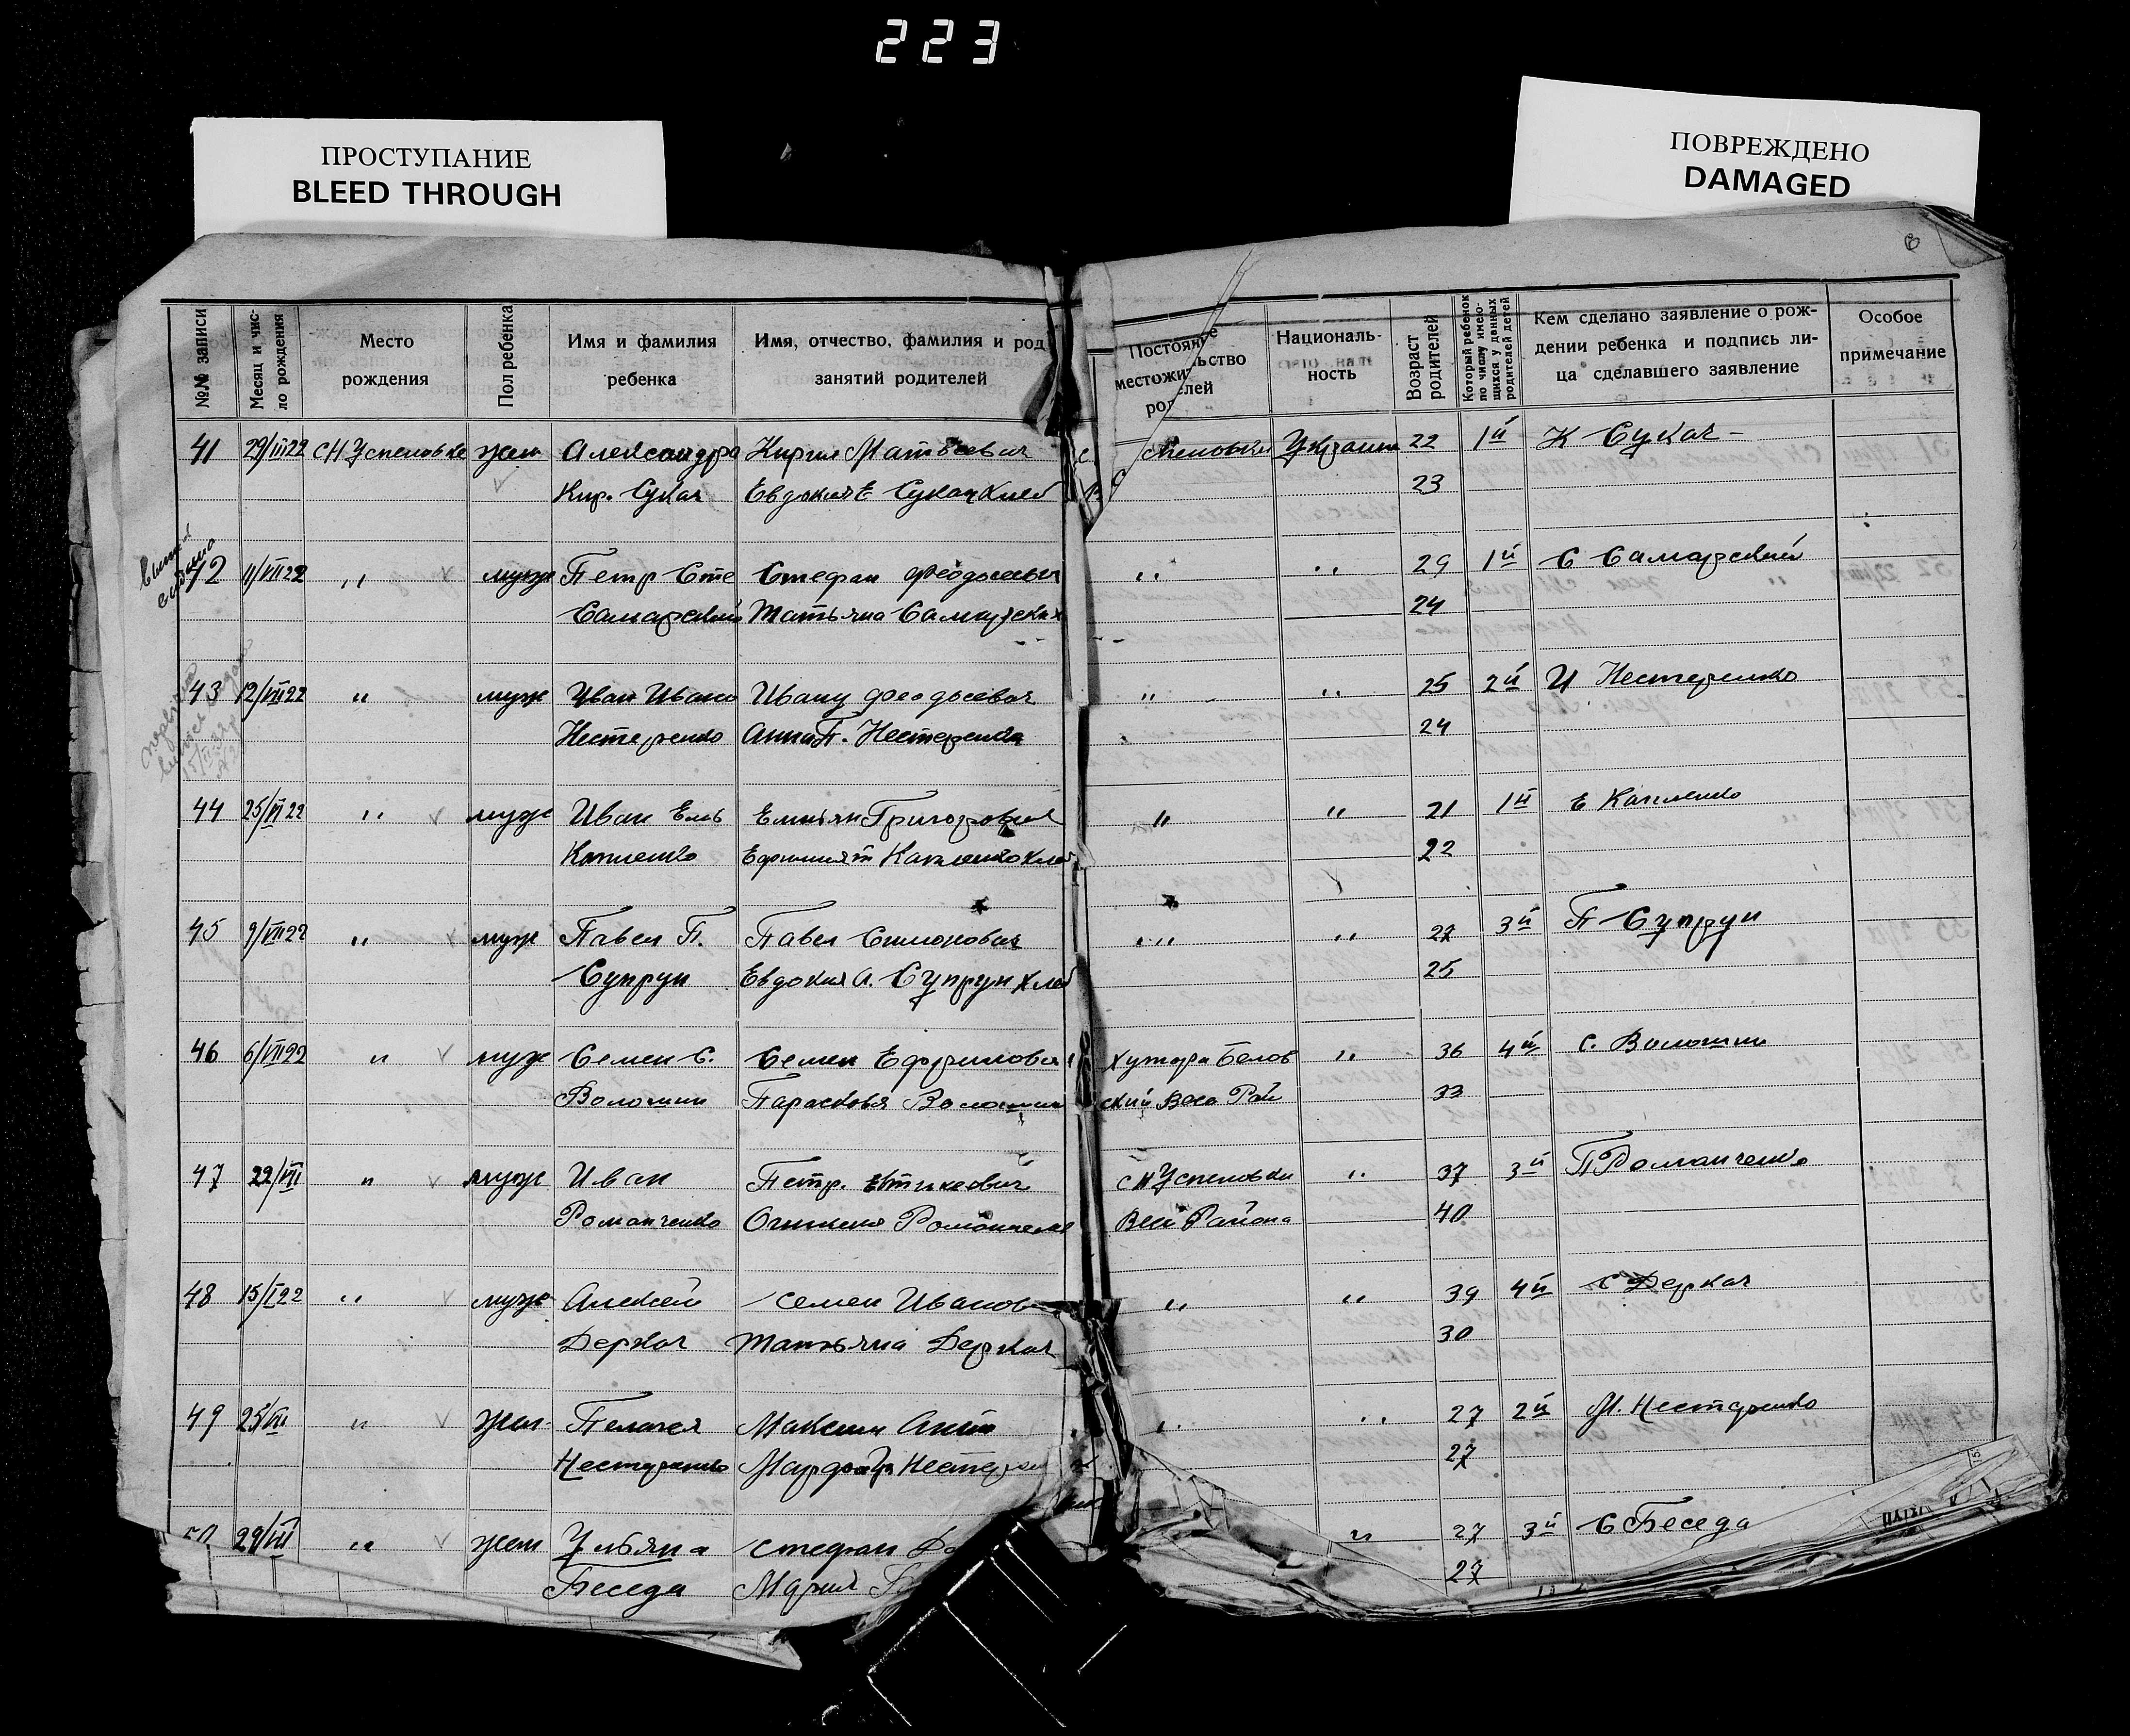 223
ПРОСТУПАНИЕ
BLEED THROUGH
ПОВРЕЖДЕНО
DAMAGED
6
№№ записи
Месяц и чис-
ло рождения
Место
рождения
Пол ребенка
Имя и фамилия
ребенка
Имя, отчество, фамилия и род
занятий родителей
Постоян
местожи льство
род елей
Националь-
ность
Возраст
родителей
Который ребенок
по числу имею-
щихся у данных
родителей детей
Кем сделано заявление о рож-
дении ребенка и подпись ли-
ца сделавшего заявление
Особое
примечание
41 29/III 22 с Н Успеновка жен Александра Кирил Матвеевич 22 1й К Сукач
Кир. Сукач Евдокия Е Сукач хлеб 23
42 11/VII 22 " муж Петр Сте Стефан Феодосьевич " " 29 1й С Самарский
Самарский Татьяна Самарских 24
43 12/VII 22 " муж Иван Ивано Ивану феодосевич " " 25 2й И Нестеренко
Нестеренко Анна П. Нестеренко 24
44 25/VI 22 " муж Иван Емь Емильян Григорович " " 21 1й Е
22
45 9/VII 22 " муж Павел П. Павел Симонович " " 27 3й П Супрун
Супрун Евдокия А. Супрун хлеб 25
46 6/VII 22 " муж Семен С. Семен Ефримович хутора Белов " 36 4й С. Волошин
Волошин Парасковья Волошин ский Весе Рай 33
47 22/VII " муж Иван Петр. с Н Успеновки " 37 3й П Романченко
Романченко Романченко Весе Района 40
48 15/I 22 " муж Алексей Семен Иванов " " 39 4й С Деркач
Деркач Татьяна Деркач 30
49 25/VII " жен Пелагея Максим Ант " " 27 2й М. Нестеренко
Нестеренко Марфа Нестерен 27
50 29/VII " жен Ульяна Стефан " 27 3й С Беседа
Беседа Мария 27